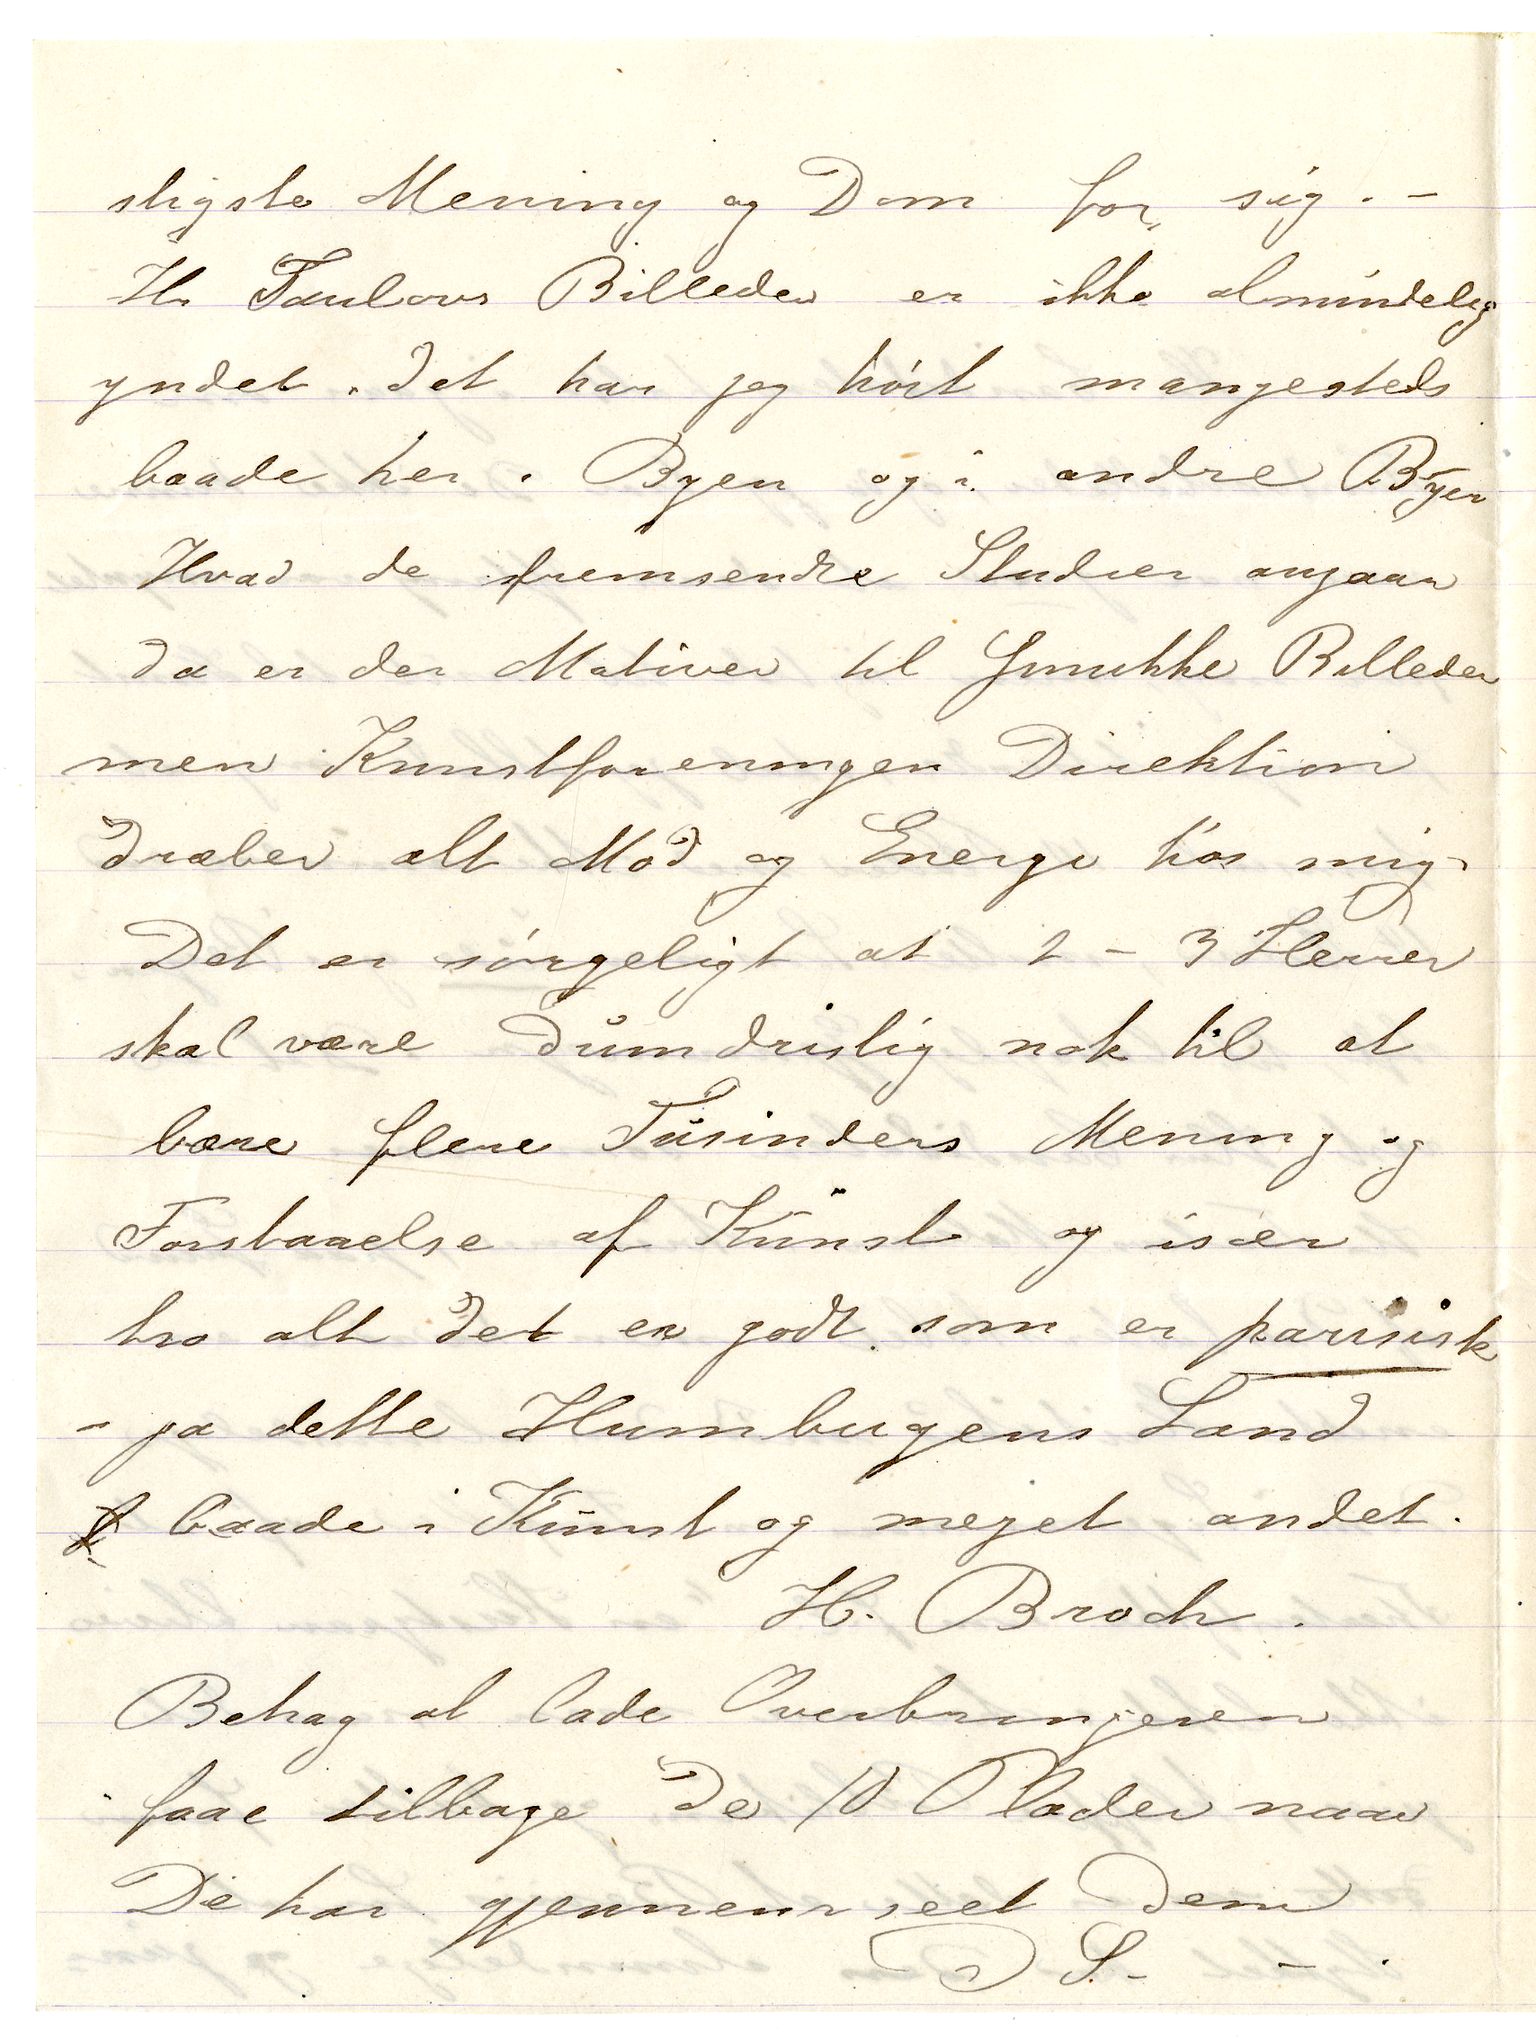 stigste Mening og Dom for sig. –
Hr Taulows Billeder er ikke almindelig
yndet. det har jeg hört mangesteds
baade her i Byen og i andre Byer
Hvad de fremsendte Studier angaar
da er der Motiver til Smukke Billeder
men Kunstforeningen Direktion
dræber alt Mod og Energi hos mig.
Det er sörgeligt at 2 – 3 Herrer
skal være dumdristig nok til at
bære flere Tusinders Mening og
Forstaaelse af Kunst og især
tro alt det er godt som er parisisk
– ja dette Humbugens Land
baade i Kunst og meget andet.
H. Broch.
Behag at lade Overbringeren
faae tilbage de 10 Plader naar
De har gjennemseet dem
D S. –